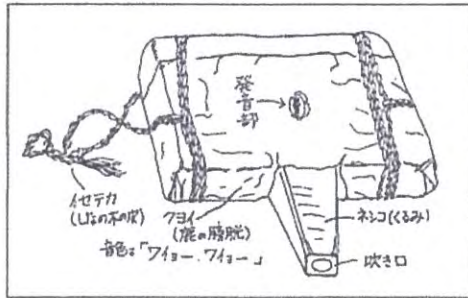 発音部
イセテカ
(しなの木の皮)
クヨイ
(鹿の膀胱)
音色は「ワイョー、ワイョー」
ネシコ(くるみ)
吹き口